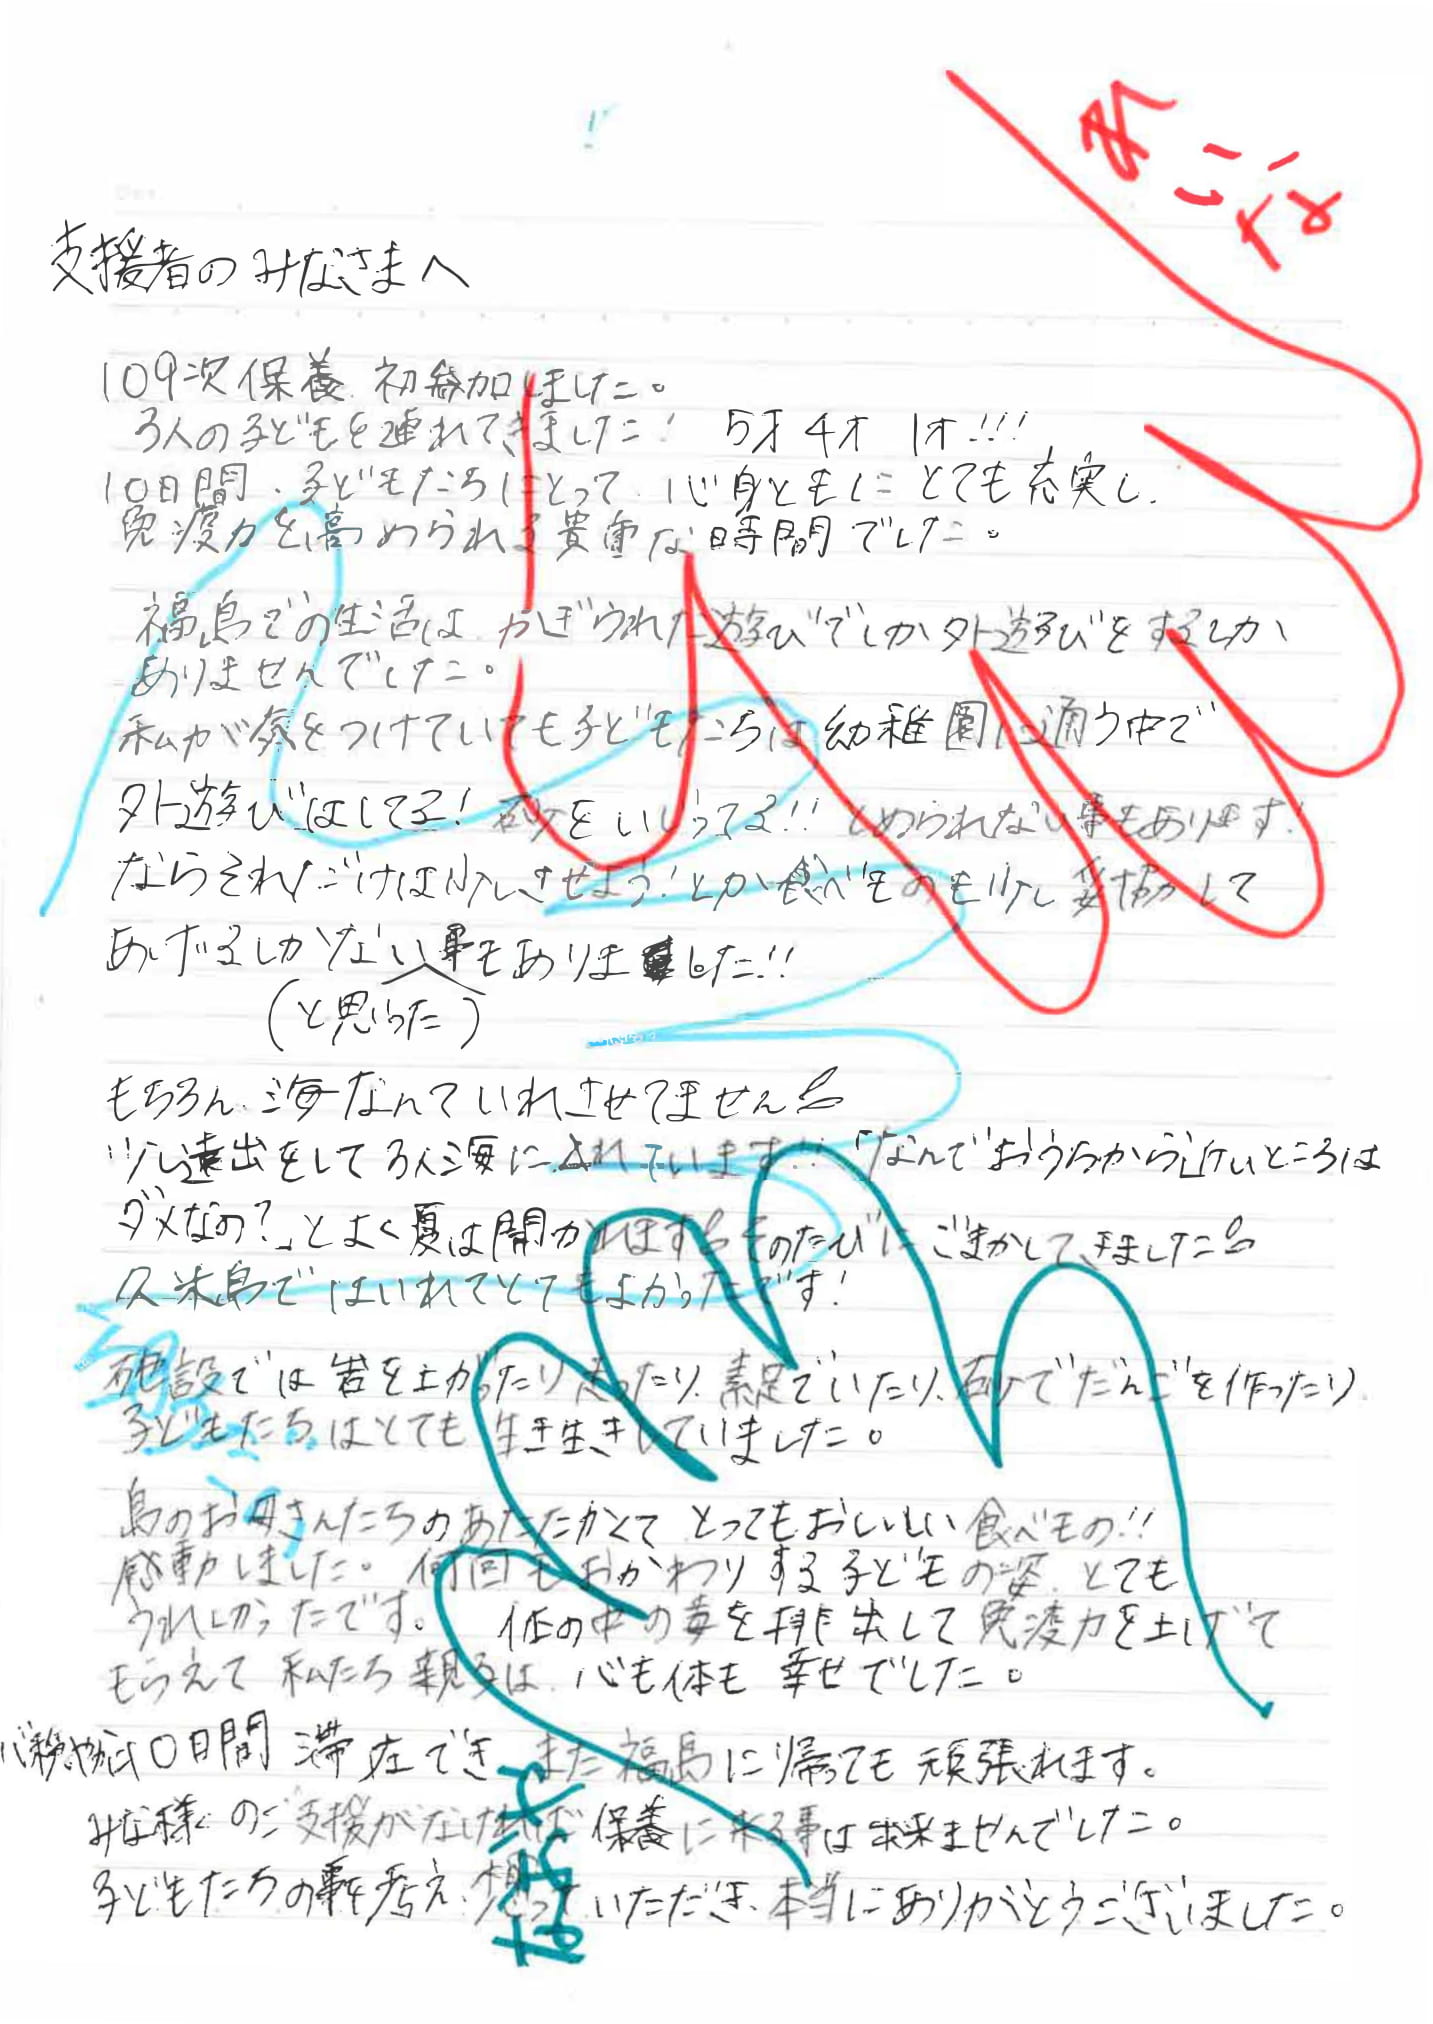 支援者のみなさまへ
109次保養、初参加しました。
3人の子どもを連れてきました! 5才4才1才!!!
10日間、子どもたちにとって、心身ともにとても充実し、
免疫力を高められる貴重な時間でした。
福島での生活は、かぎられた遊びでしか外遊びをするしか
ありませんでした。
私が気をつけていても子どもたちは幼稚園に通う中で
外遊びはしてる! 砂をいじってる!! とめられない事もあります!
ならそれだけは少しさせよう!とか食べものも少し妥協して
あげるしかない事もありました!!
(と思った)
もちろん、海なんていれさせてません
少し遠出をして3人海に入れています!! 「なんでおうちから近いところは
ダメなの?」とよく夏は聞かれます そのたびにごまかしてきました
久米島ではいれてとてもよかったです!
施設では岩を上がったり走ったり、素足でいたり、砂でだんごを作ったり、
子どもたちはとても生き生きしていました。
島のお母さんたちのあたたかくて とってもおいしい食べもの!!
感動しました。 何回もおかわりする子どもの姿、とても
うれしかったです。 体の中の毒を排出して免疫力を上げて
もらえて 私たち親子は、心も体も 幸せでした。
10日間 滞在でき、また福島に帰っても頑張れます。
みな様のご支援がなければ保養に来る事は出来ませんでした。
子どもたちの事を考え、想っていただき、本当にありがとうございました。